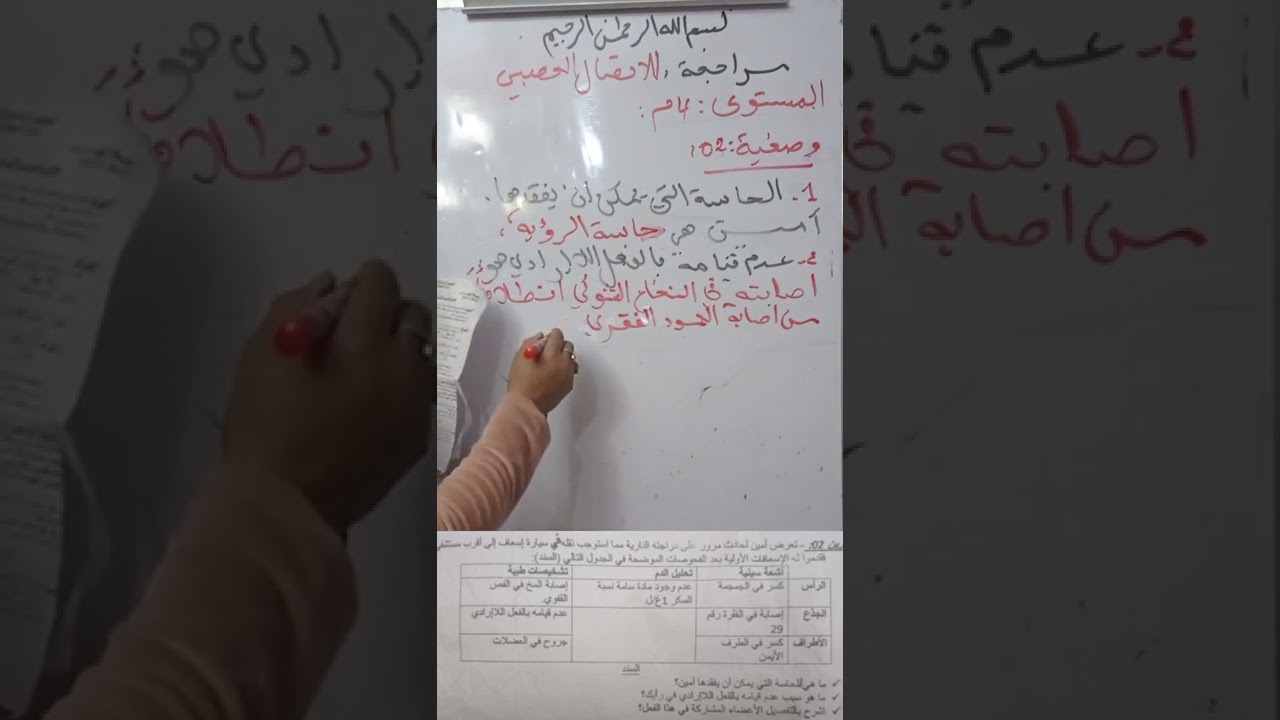 بسم الله الرحمان الرحيم
مراجعة: للاتصال العصبي
المستوى: 4م:
وضعية: 02:
1. الحاسة التي يمكن أن يفقدها
أمين هي حاسة الرؤية،
2- عدم قيامه بالفعل اللاإرادي هو
اصابته في النخاع الشوكي انطلاقا
من اصابة العمود الفقري
02: - تعرض أمين لحادث مرور على دراجته النارية مما استوجب نقله في سيارة إسعاف إلى أقرب مستشفى
فقدموا له الإسعافات الأولية بعد الفحوصات الموضحة في الجدول التالي (السند):
أشعة سينية تحليل الدم تشخيصات طبية
الرأس كسر في الجمجمة عدم وجود مادة سامة نسبة السكر 1غ/ل إصابة المخ في الفص القفوي.
الجذع إصابة في الفقرة رقم 29 عدم قيامه بالفعل اللاإرادي
الأطراف كسر في الطرف الأيمن جروح في العضلات
السند
✓ ما هي الحاسة التي يمكن أن يفقدها أمين؟
✓ ما هو سبب عدم قيامه بالفعل اللاإرادي في رأيك؟
✓ اشرح بالتفصيل الأعضاء المشاركة في هذا الفعل؟